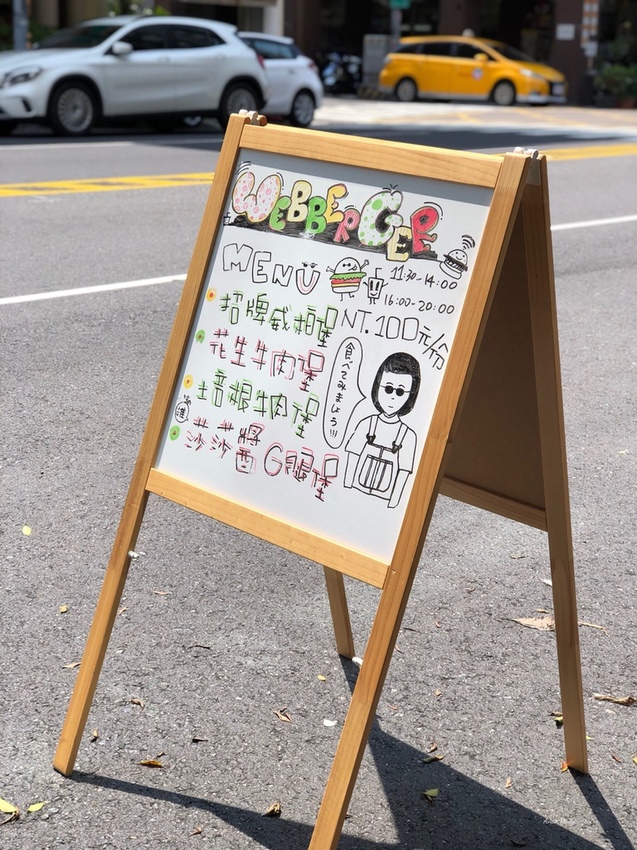 WEBBER GEE
MENU
11:30-14:00
16:00-20:00
招牌威柏堡
NT.100元/個
花生牛肉堡
培根牛肉堡
莎莎醬G腿堡
食べてみましょう!!!